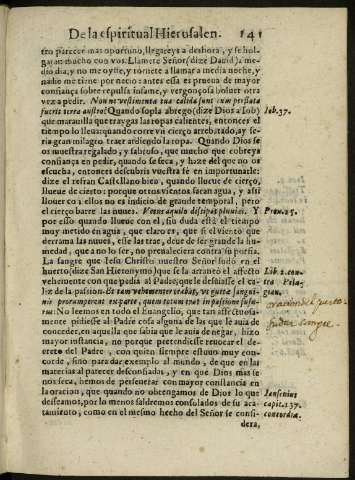 De la espiritual Hierusalen. 141
tro parecer mas oportuno, llegareys a deshora, y se hol-
garan mucho con vos. Llamete Señor (dize Dauid) a me-
dio dia, y no me oyste, y tornete a llamar a media noche, y
nadie me tiene por necio: antes essa es prueua de mayor
confiança sobre repulsa infame, y vergonçosa boluer otra
vez a pedir. Non ne vestimenta tua calida sunt cum perflata
fuerit terra austro? Quando sopla abrego (dize Dios a Iob)
que marauilla que traygas las ropas calientes, entonces el
tiempo lo lleua: quando corre vn cierço arrebatado, ay se-
ria gran milagro traer ardiendo la ropa. Quando Dios se
os muestra regalado, y sabroso, que mucho que cobreys
confiança en pedir, quando se seca, y haze del que no os
escucha, entonces descubris vuestra fè en importunarle:
dize el refran Castellano bien, quando llueue de cierço,
llueue de cierto: porque otros vientos sean agua, y assi
llouer co i ellos no es indicio de grande temporal, pero
el cierço barre las nuues. Ventus aquilo dissipat pluuias. Y
por esso quando con el llueue, sin duda està el tiempo
muy metido en agua, que claro es, que si el viento que
derrama las nuues, esse las trae, deue de ser grande la hu-
medad, que a no lo ser, no preualeciera contra su porfia.
La sangre que Iesu Christo nuestro Señor sudò en el
huerto (dize San Hieronymo) que se la arrancò el affecto
vehemente con que pedia al Padre, que le desuiasse el ca-
liz de la passion. Et tam vehementer orabat, vt guttæ sangui-
nis prorumperent ex parte, quem totum erat in passione fusu-
rus: No leemos en todo el Euangelio, que tan affectuosa-
mente pidiesse al Padre cosa alguna de las que le auia de
conceder, en aquella que sabia que le auia de negar, hizo
mayor instancia, no porque pretendiesse reuocar el de-
creto del Padre, con quien siempre estuuo muy con-
corde, sino para dar exemplo al mundo, de que en las
materias al parecer desconfiadas, y en que Dios mas se
nos seca, hemos de perseuerar con mayor constancia en
la oracion, que quando no obtengamos de Dios lo que
desseamos, por lo menos saldremos consolados de su aca-
tamiento, como en el mesmo hecho del Señor se consi-
dera,
Iob. 37.
Prou. 25.
Lib. 2. con-
tra Pela-
gian.
sudar sangre.
Iansenius
capit. 137.
concordiæ.